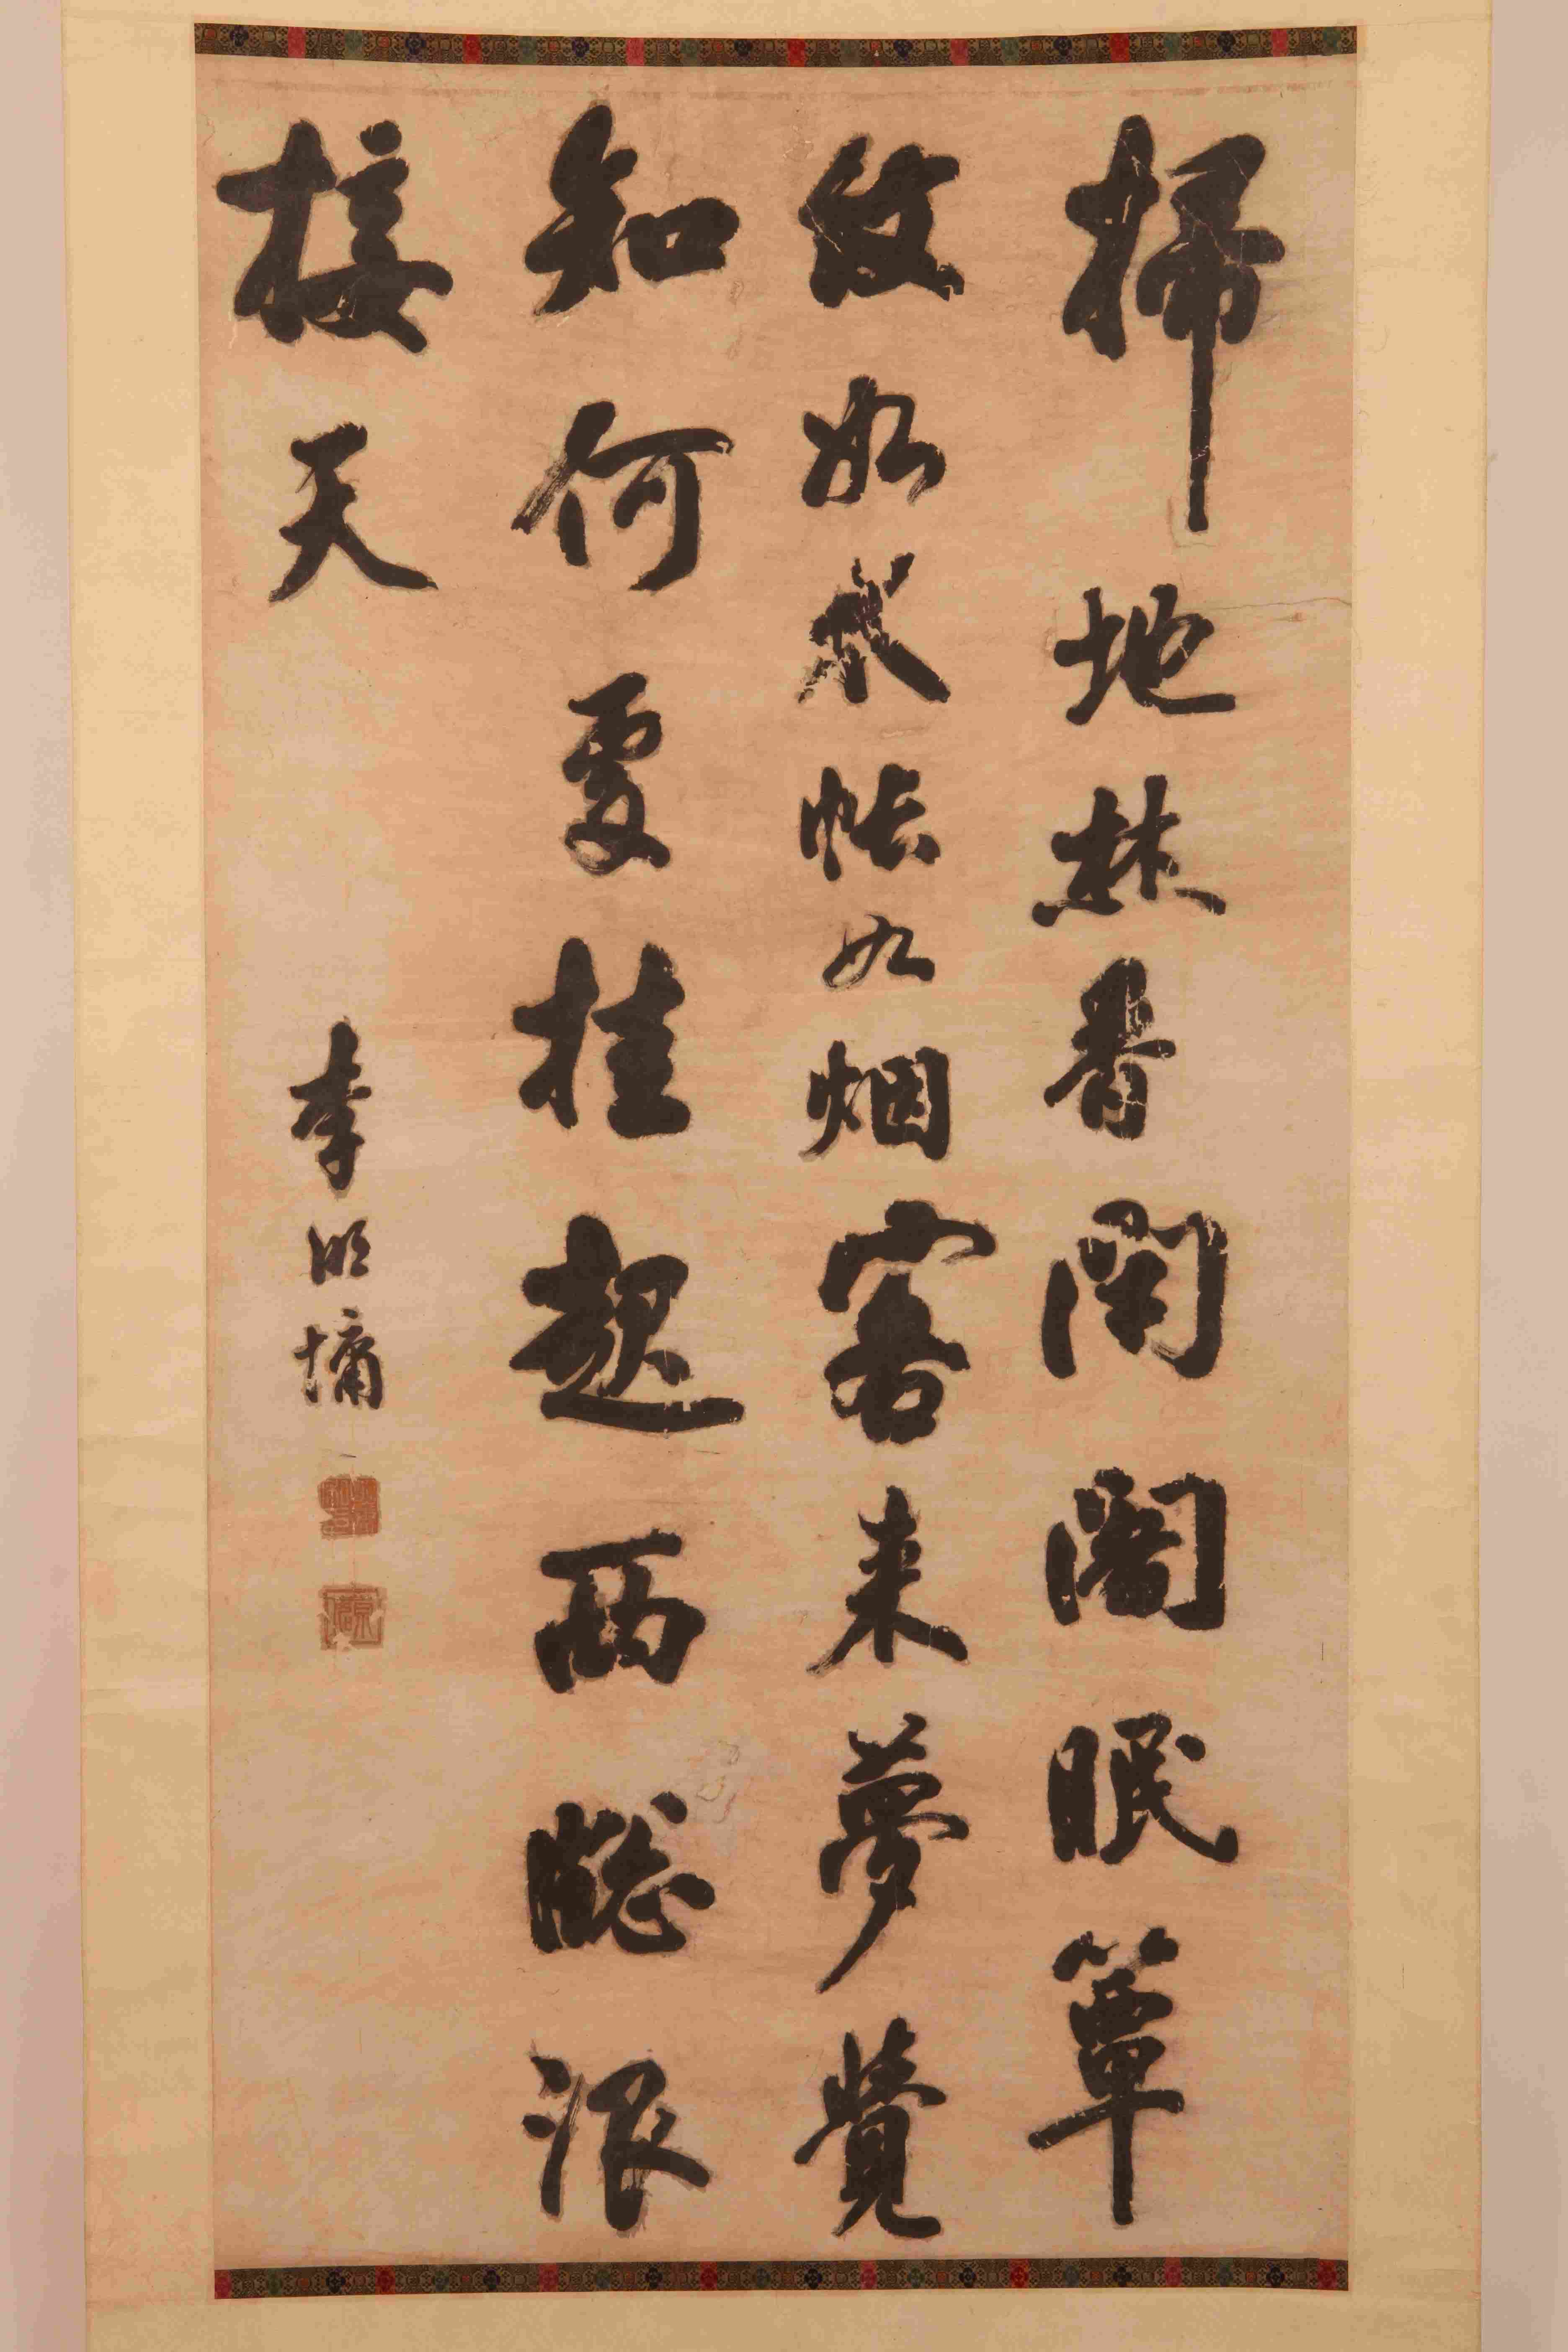 掃地焚香閉閣眠簟
紋如水帳如烟客来夢覺
知何處挂起西牕浪
接天
李明墉